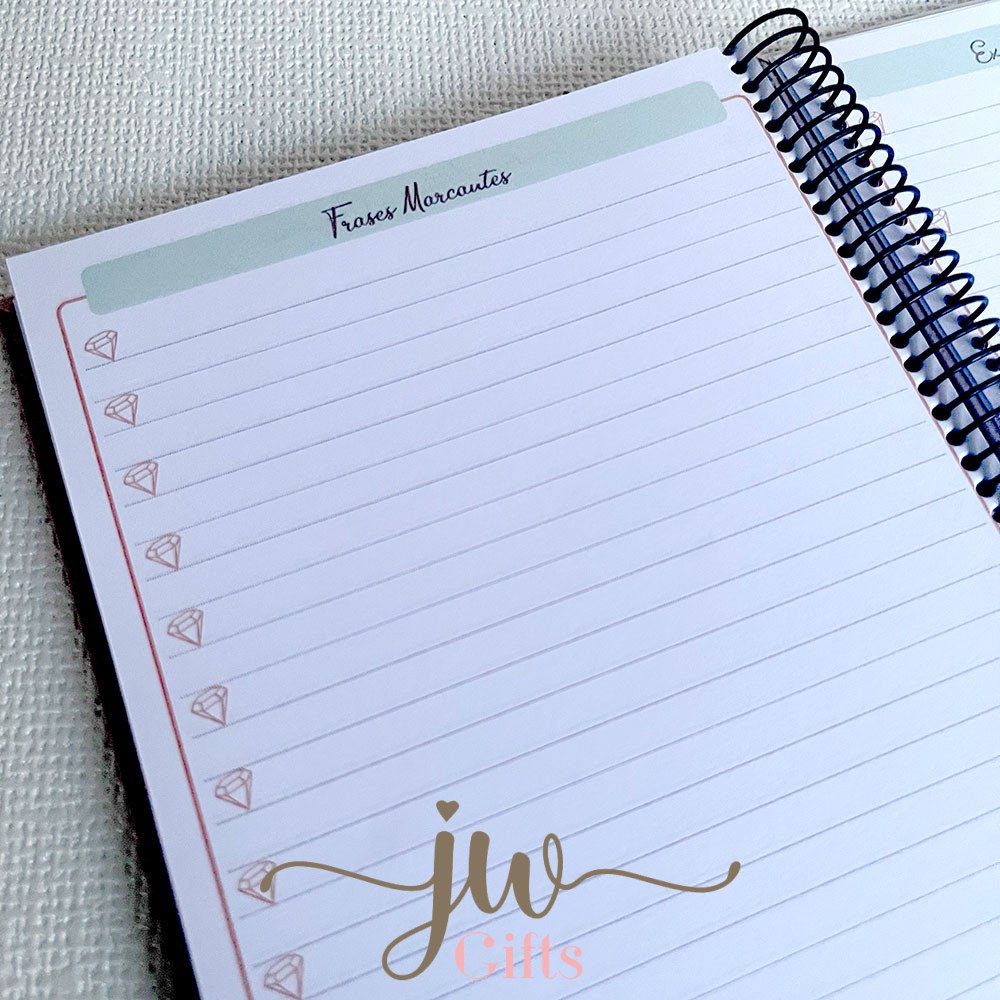 Frases Marcantes
jw
Gifts